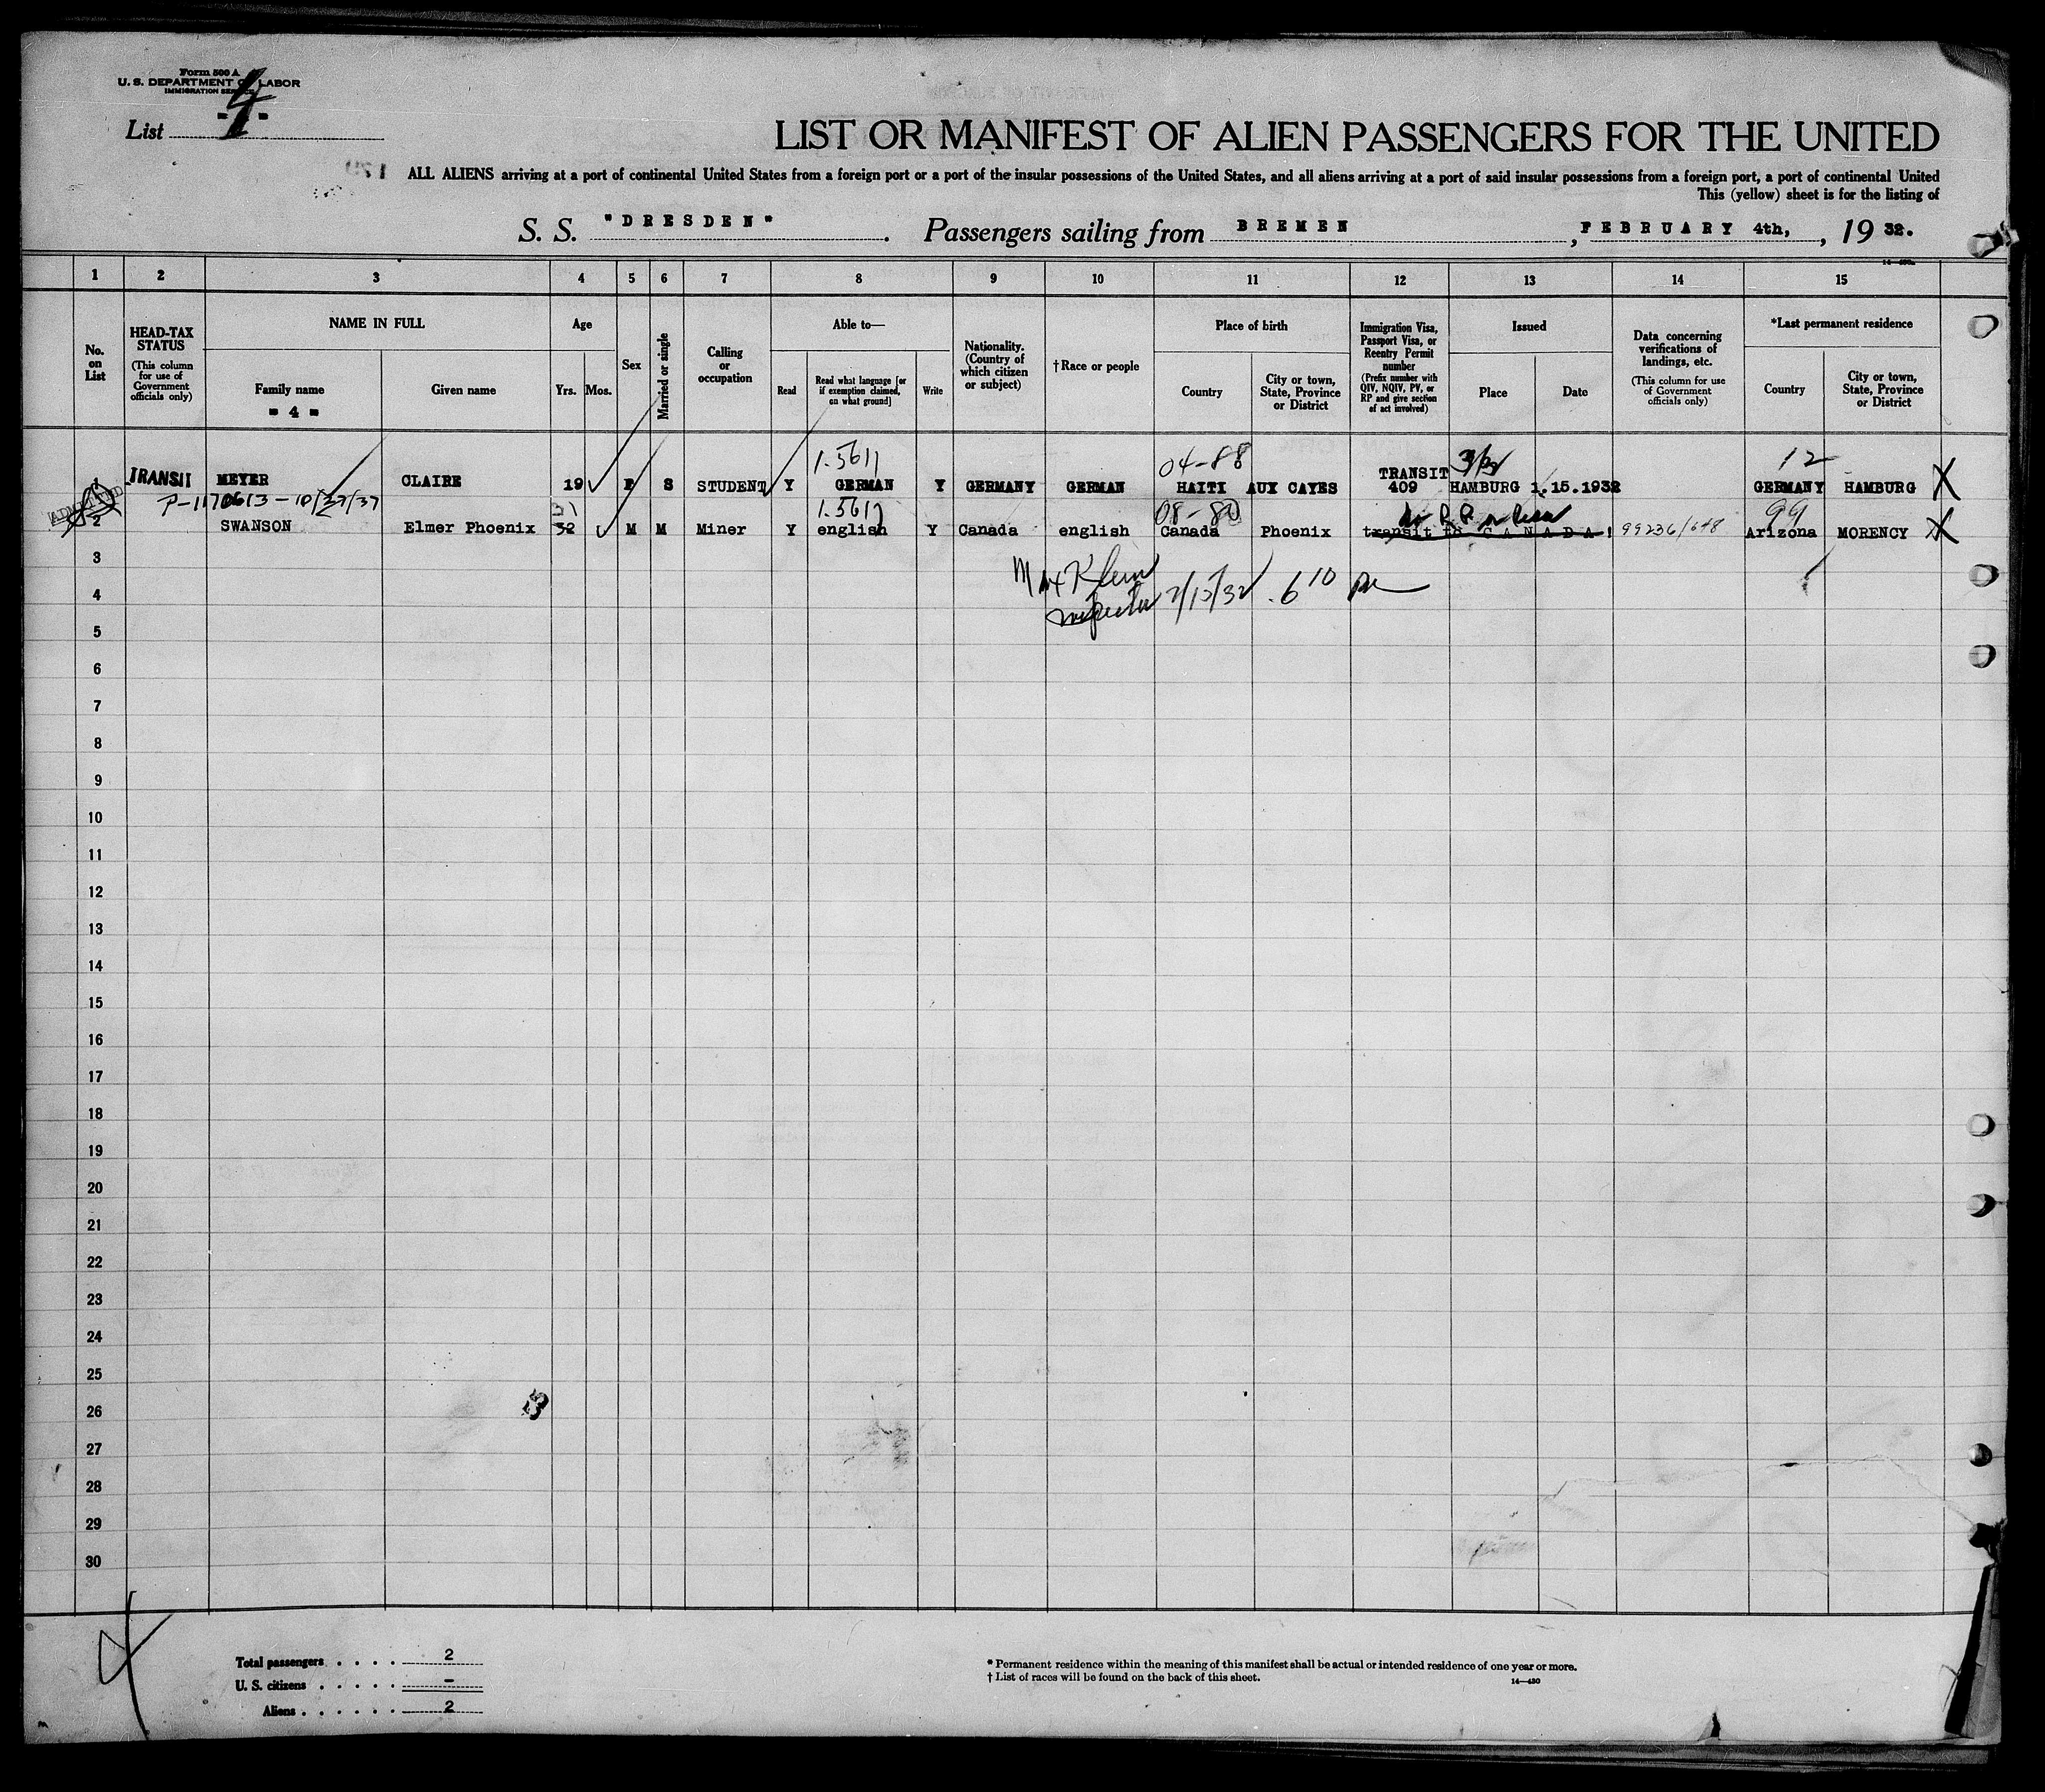 Form 500 A
U. S. DEPARTMENT OF LABOR
IMMIGRATION SERVICE
List -4-
4
LIST OR MANIFEST OF ALIEN PASSENGERS FOR THE UNITED
ALL ALIENS arriving at a port of continental United States from a foreign port or a port of the insular possessions of the United States, and all aliens arriving at a port of said insular possessions from a foreign port, a port of continental United
This (yellow) sheet is for the listing of
S. S. "DRESDEN". Passengers sailing from BREMEN, FEBRUARY 4th,, 19 32.
1 2 3 4 5 6 7 8 9 10 11 12 13 14 15
No. on List
HEAD-TAX STATUS
(This column for use of Government officials only)
NAME IN FULL
Family name
- 4 -
Given name
Age
Yrs. Mos.
Sex
Married or single
Calling or occupation
Able to—
Read
Read what language [or if exemption claimed, on what ground]
Write
Nationality. (Country of which citizen or subject)
†Race or people
Place of birth
Country
City or town, State, Province or District
Immigration Visa, Passport Visa, or Reentry Permit number
(Prefix number with QIV, NQIV, PV, or RP and give section of act involved)
Issued
Place
Date
Data concerning verifications of landings, etc.
(This column for use of Government officials only)
*Last permanent residence
Country
City or town, State, Province or District
1.5611 04-88 12
1 TRANSIT MEYER CLAIRE 19 F S STUDENT Y GERMAN Y GERMANY GERMAN HAITI AUX CAYES TRANSIT 409 HAMBURG 1.15.1932 GERMANY HAMBURG X
ADMITTED
P-1170613-10/27/37
1.5611 08-80 99
2 SWANSON Elmer Phoenix 32 M M Miner Y english Y Canada english Canada Phoenix transit to CANADA! 99236/648 Arizona MORENCY X
3
Max Klein
4
Inspector 2/15/32 . 6 10 pm
5
6
7
8
9
10
11
12
13
14
15
16
17
18
19
20
21
22
23
24
25
26
27
28
29
30
4
Total passengers . . . . 2
U. S. citizens . . . . . -
Aliens . . . . . . 2
* Permanent residence within the meaning of this manifest shall be actual or intended residence of one year or more.
† List of races will be found on the back of this sheet.
14—430